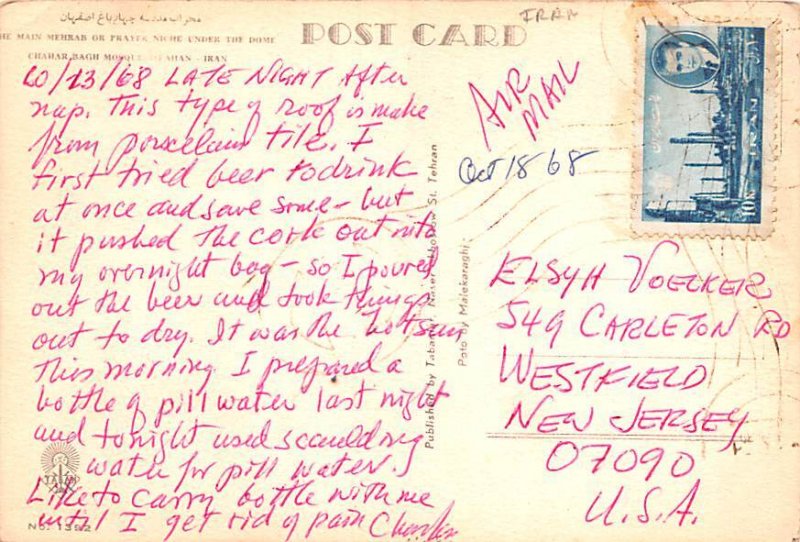 محراب مدرسه چهارباغ اصفهان
HE MAIN MEHRAB OR PRAYER NICHE UNDER THE DOME
CHAHAR BAGH MOSQUE ISFAHAN - IRAN
POST CARD
IRAN
10/13/68 LATE NIGHT After
nap. This type of roof is make
from porcelain tile. I
first tried beer to drink
at once and save some - but
it pushed the cork out into
my overnight bag - so I poured
out the beer and took things
out to dry. It was the hot sun
this morning. I prepared a
bottle of pill water last night
and tonight used scaulding
water for pill water.
Like to carry bottle with me
until I get rid of pain
TABAN
No. 1392
Published by Taban, Naser Khosrow St. Tehran
Poto by Malekaraghi:
AIR
MAIL
Oct 18 68
IRAN
10R
ELSYH VOELKER
549 CARLETON RD
WESTFIELD
NEW JERSEY
07090
U.S.A.